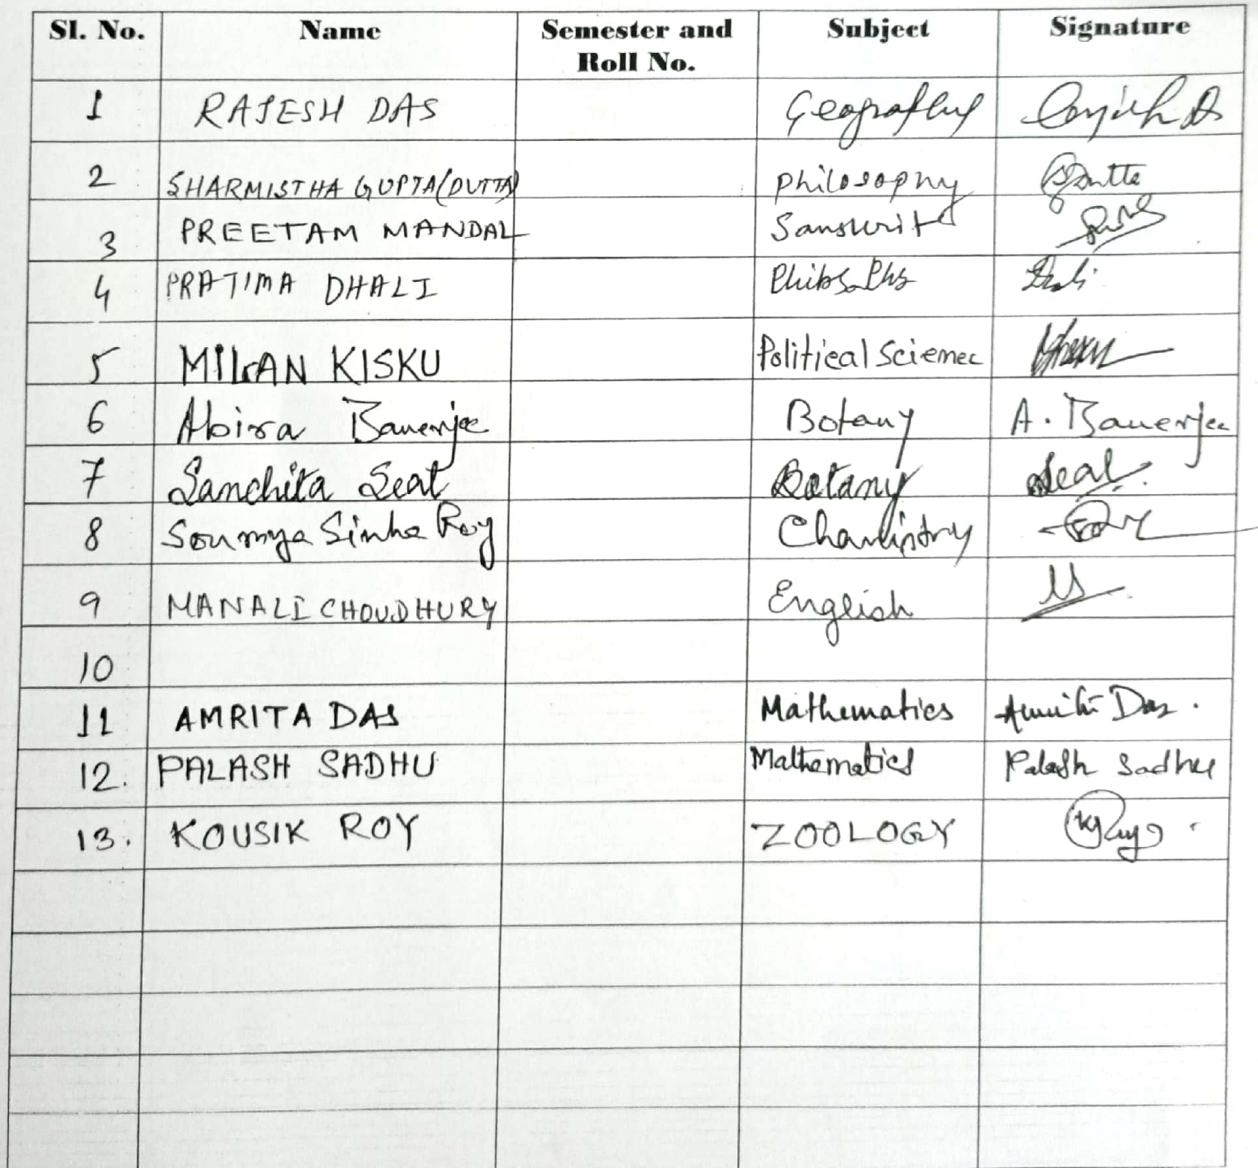 Sl. No. Name Semester and Roll No. Subject Signature
1 RAJESH DAS Geography
2 SHARMISTHA GUPTA(DUTTA) Philosophy Dutta
3 PREETAM MANDAL Sanskrit
4 PRATIMA DHALI Philosophy Dhali
5 MILAN KISKU Political Science
6 Abira Banerjee Botany A. Banerjee
7 Sanchita Seal Botany Seal
8 Soumya Sinha Roy Chemistry
9 MANALI CHOUDHURY English
10
11 AMRITA DAS Mathematics Amrita Das.
12. PALASH SADHU Mathematics Palash Sadhu
13. KOUSIK ROY ZOOLOGY KRoy